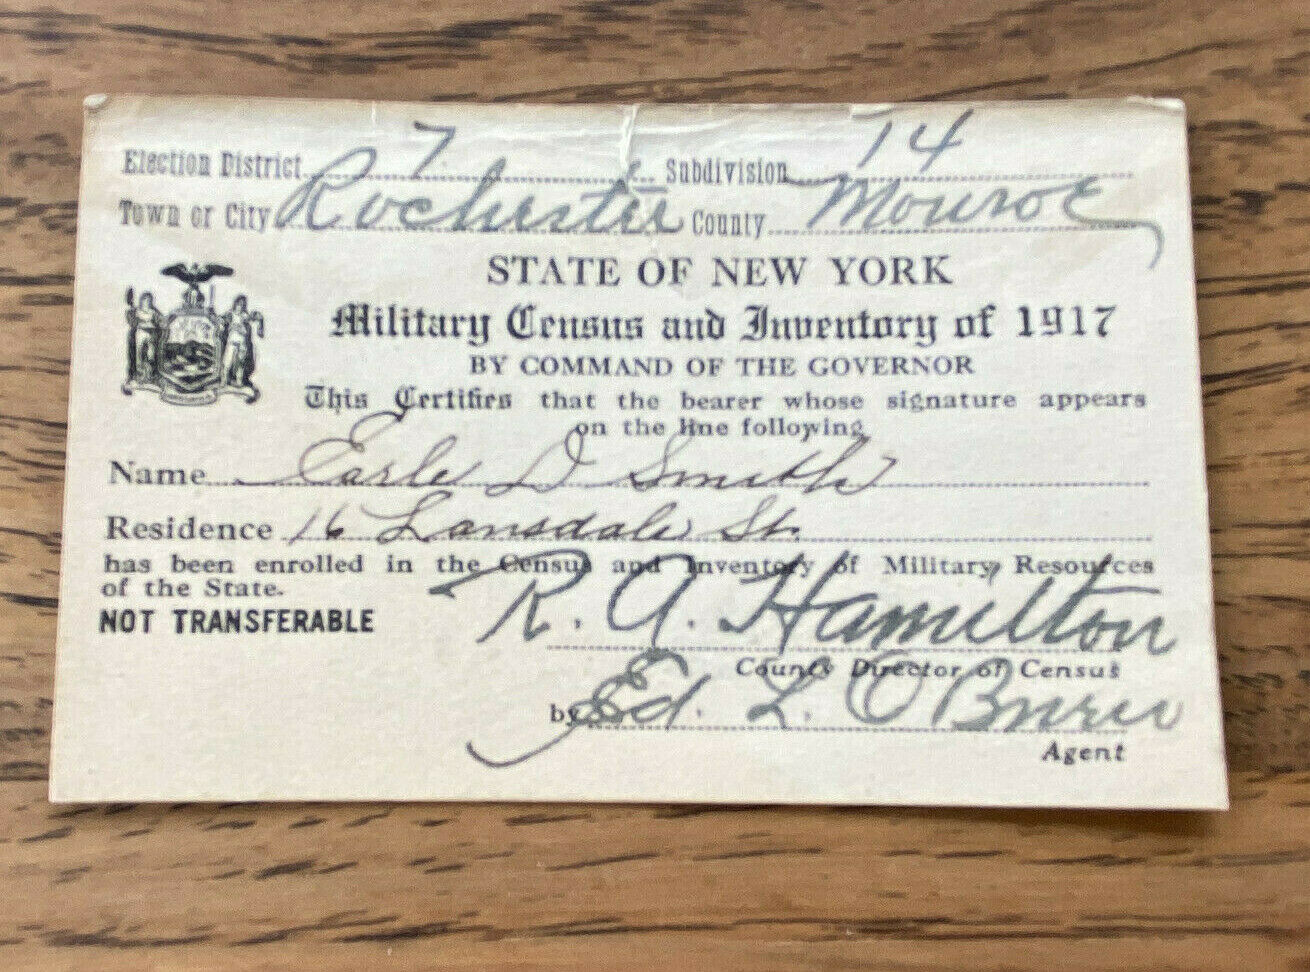 Election District 7 Subdivision 14
Town or City Rochester County Monroe
STATE OF NEW YORK
Military Census and Inventory of 1917
BY COMMAND OF THE GOVERNOR
This Certifies that the bearer whose signature appears
on the line following
Name Earle D Smith
Residence 16 Lansdale St.
has been enrolled in the Census and Inventory of Military Resources
of the State.
NOT TRANSFERABLE
R. A. Hamilton
County Director of Census
by Ed. L. O'Brien
Agent